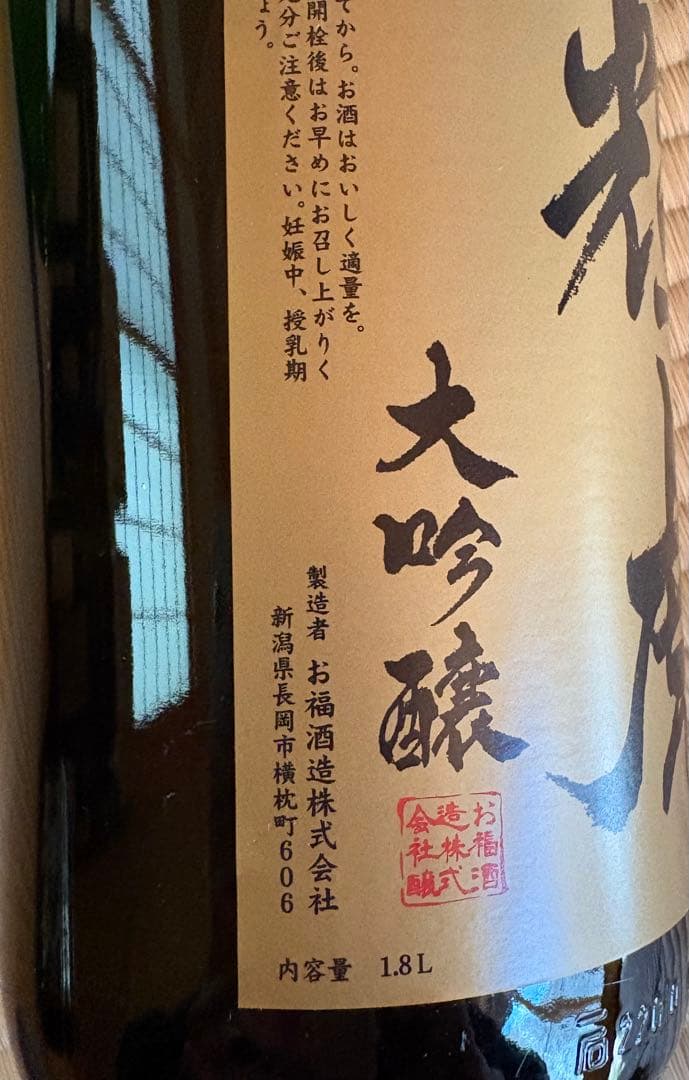 大吟醸
てから。お酒はおいしく適量を。
開栓後はお早めにお召し上がりく
分ご注意ください。妊娠中、授乳期
ょう。
製造者 お福酒造株式会社
新潟県長岡市横枕町606
お福酒
造株式
会社醸
内容量 1.8L